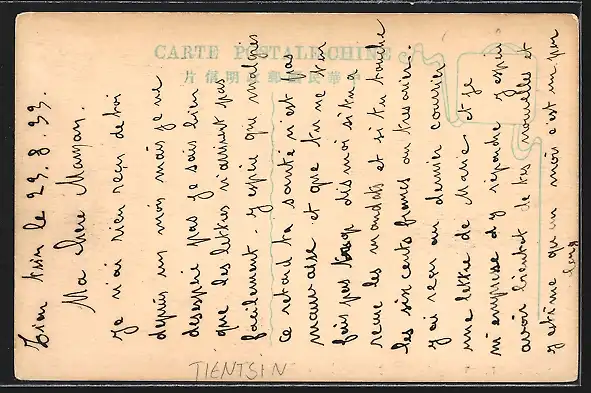 CARTE POSTALE CHINE
片信儀明政郵國民華中
Tien tsin le 23.8.33.
Ma chere Maman.
Je n'ai rien reçu de toi
depuis un mois mais je ne
desespere pas je sais bien
que les lettres n'arrivent pas
facilement. j'espere que malgres
ce retard ta santée n'est pas
mauvaise et que tu ne t'en
fais pas trop dis moi si tu as
recue les mandats et si tu touche
les six cents francs au tresorier
j'ai reçu au dernier courrier
une lettre de Marie et je
m'empresse d'y repondre j'espere
avoir bientot de tes nouvelles et
j'estime qu'un mois c'est un peu
long
TIENTSIN